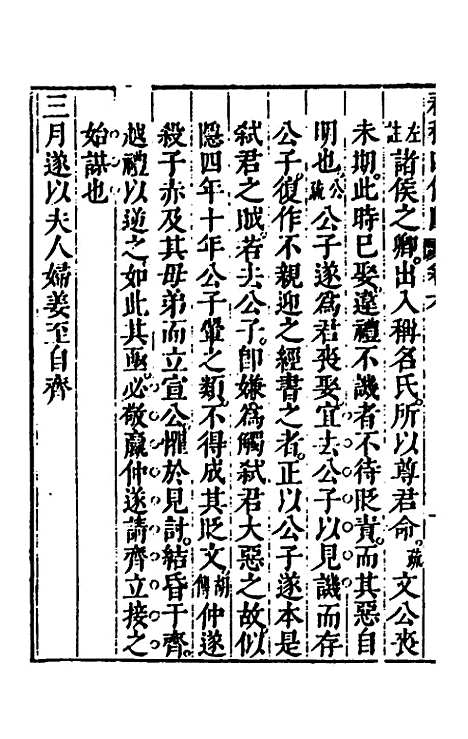 左註諸侯之卿。出入稱名氏。所以尊君命。疏文公喪
未期。此時已娶。違禮不譏者。不待貶責。而其惡自
明也。公疏公子遂爲君喪娶。宜去公子以見譏。而存
公子。復作不親迎之經書之者。正以公子遂本是
弒君之賊。若去公子。卽嫌爲觸弒君大惡之故。似
隱四年十年公子翬之類。不得成其貶文。胡傳仲遂
殺子赤及其母弟而立宣公。懼於見討。結昏于齊。
越禮以逆之。如此其亟。必敬嬴仲遂請齊立接之
始謀也
三月遂以夫人婦姜至自齊